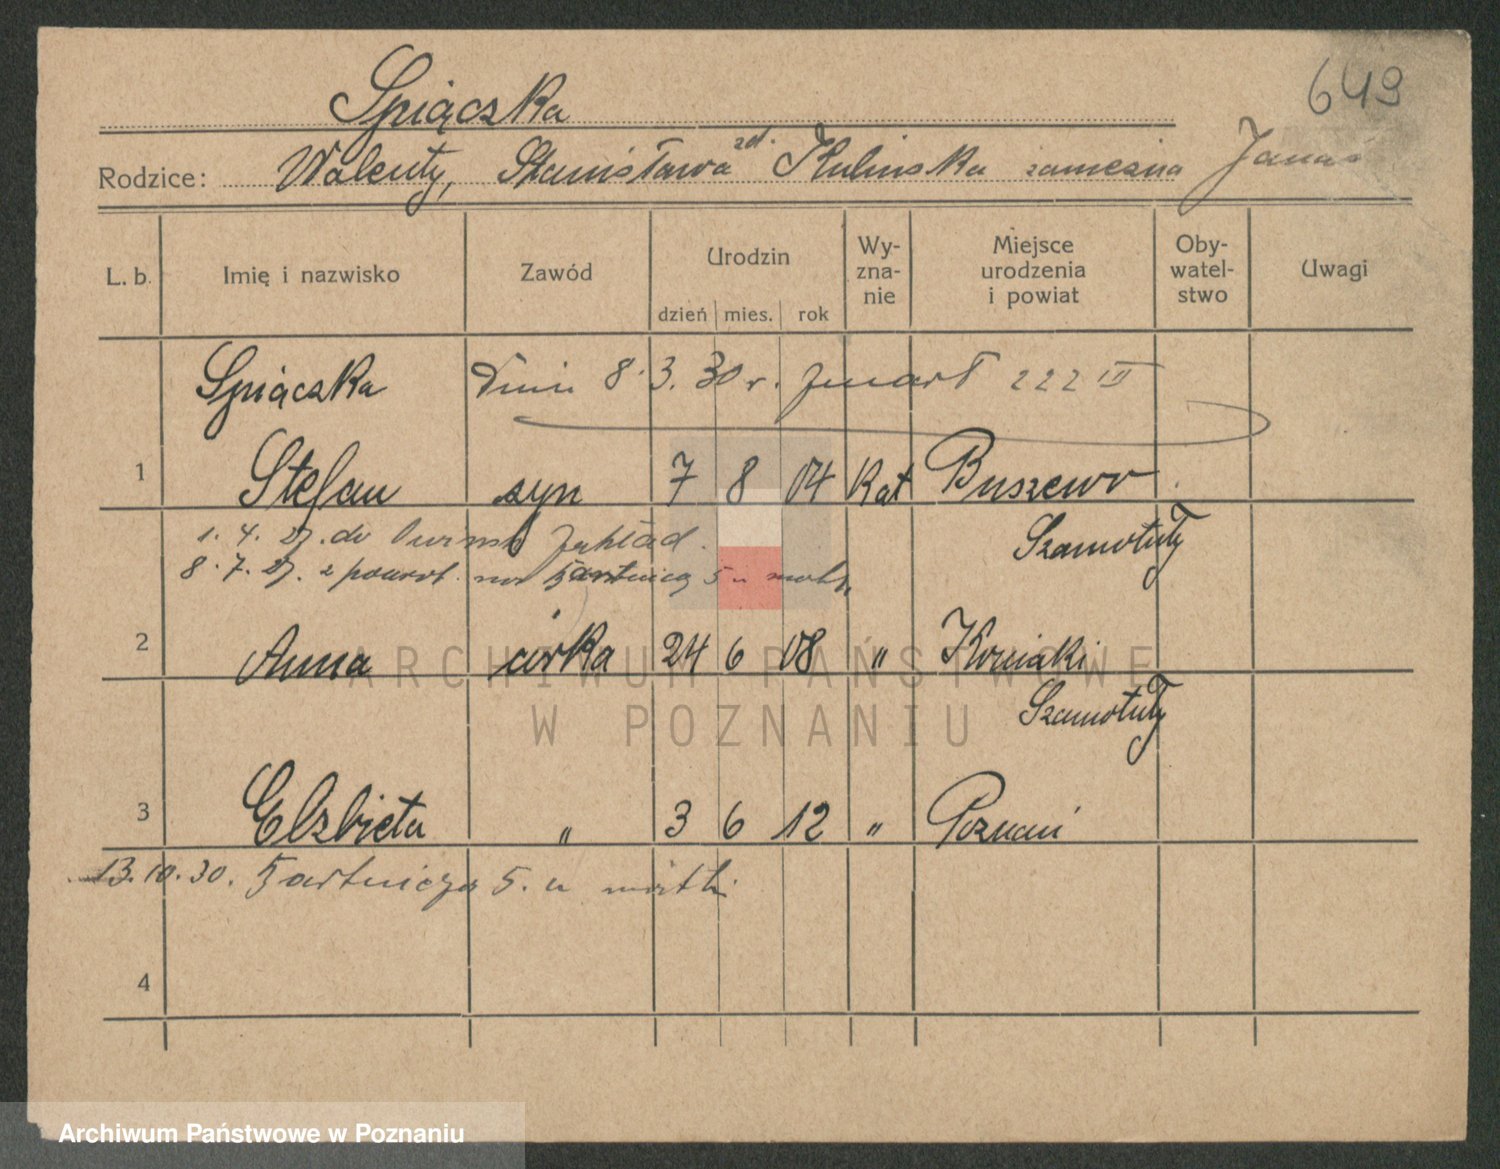 649
Śpiączka
Rodzice: Walenty, Stanisława zd. Kulinska zamężna Janas
L. b. Imię i nazwisko Zawód Urodzin dzień mies. rok Wy-zna-nie Miejsce urodzenia i powiat Oby-watel-stwo Uwagi
Śpiączka Dnia 8. 3. 30 r. zmarł 222 III
1 Stefan syn 7 8 04 Kat Buszewo
Szamotuły
1. 4. 27. do Zakład.
8. 7. 27. z powrot. 5 u matki
2 Anna córka 24 6 08 " Koniaki
Szamotuły
3 Elzbieta " 3 6 12 " Poznań
13.10.30. 5. u matki
4
ARCHIWUM PAŃSTWOWE
W POZNANIU
Archiwum Państwowe w Poznaniu